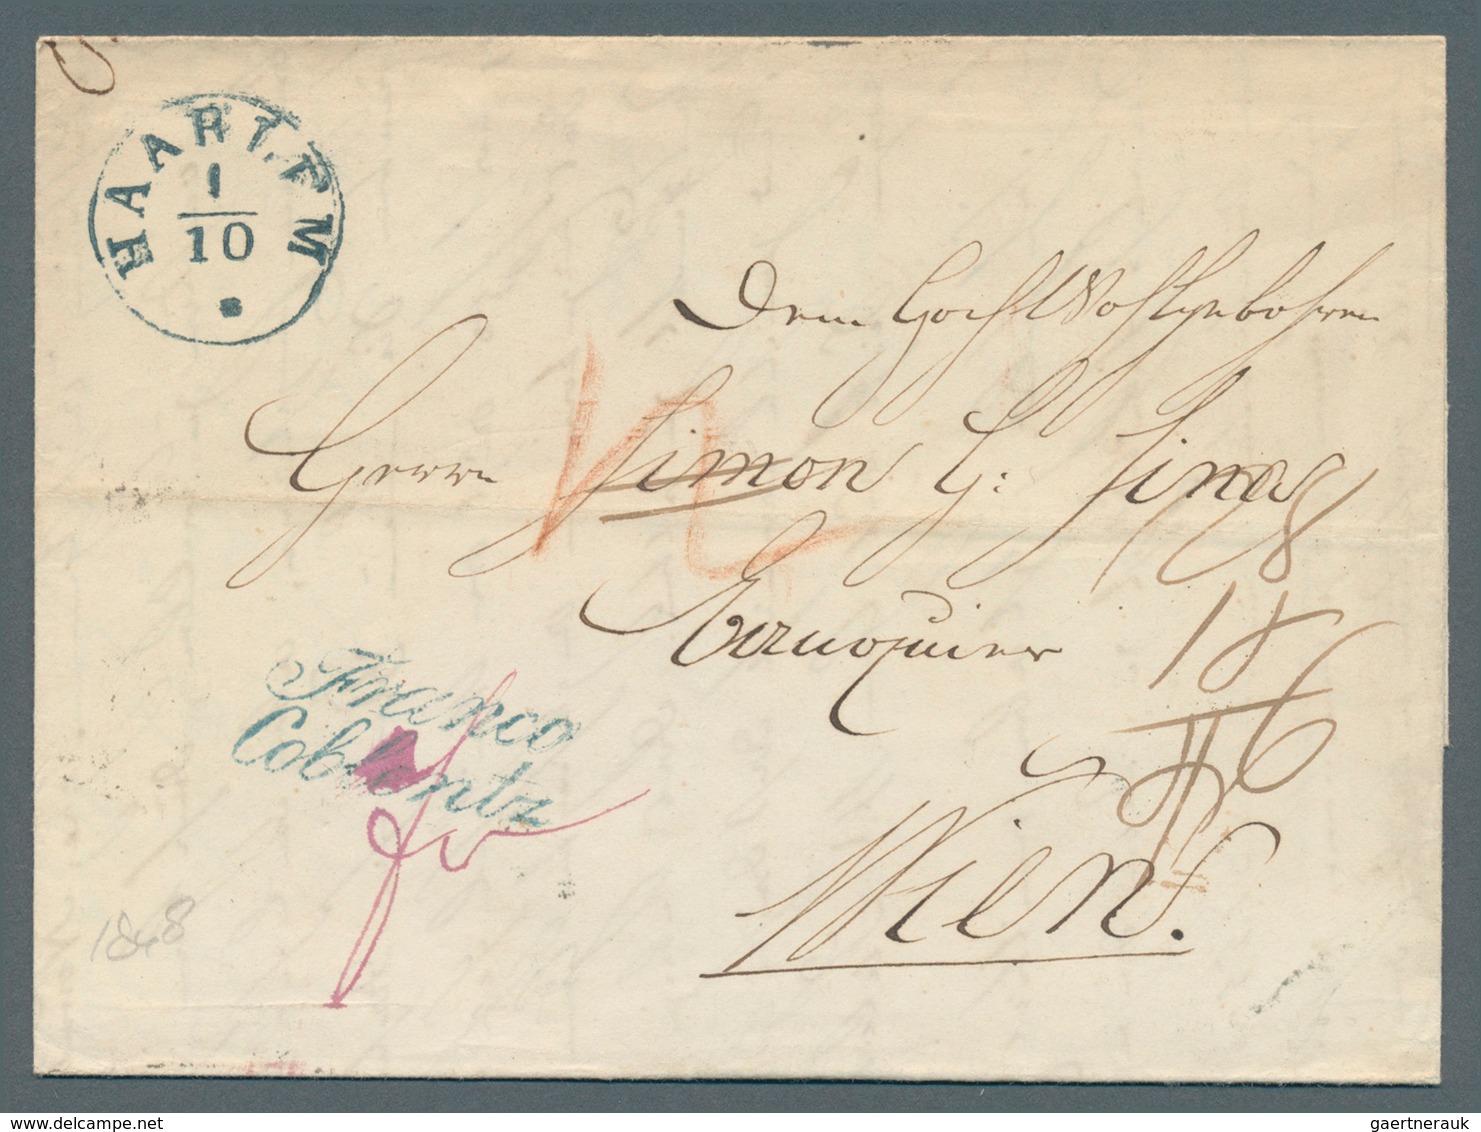 HAARLEM
1
10
Dem Hochwohlgebohren
Herrn Simon G: Sina
Banquier
Franco
Coblentz
Wien.
1848
gaertnerauk